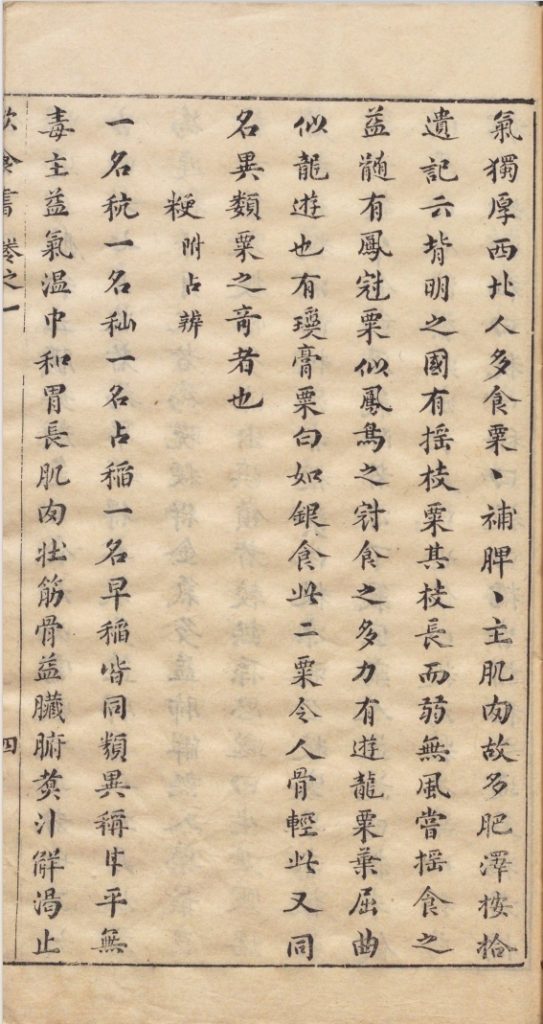 氣獨厚西北人多食粟丶補脾丶主肌肉故多肥澤按拾
遺記云背明之國有摇枝粟其枝長而弱無風嘗摇食之
益髓有鳳冠粟似鳳鳥之冠食之多力有遊龍粟葉屈曲
似龍遊也有瓊膏粟白如銀食此二粟令人骨輕此又同
名異類粟之竒者也
粳附占辨
一名秔一名秈一名占稻一名早稻皆同類異稱甘平無
毒主益氣温中和胃長肌肉壮筋骨益臟腑煑汁解渴止
飲食書卷之一 四